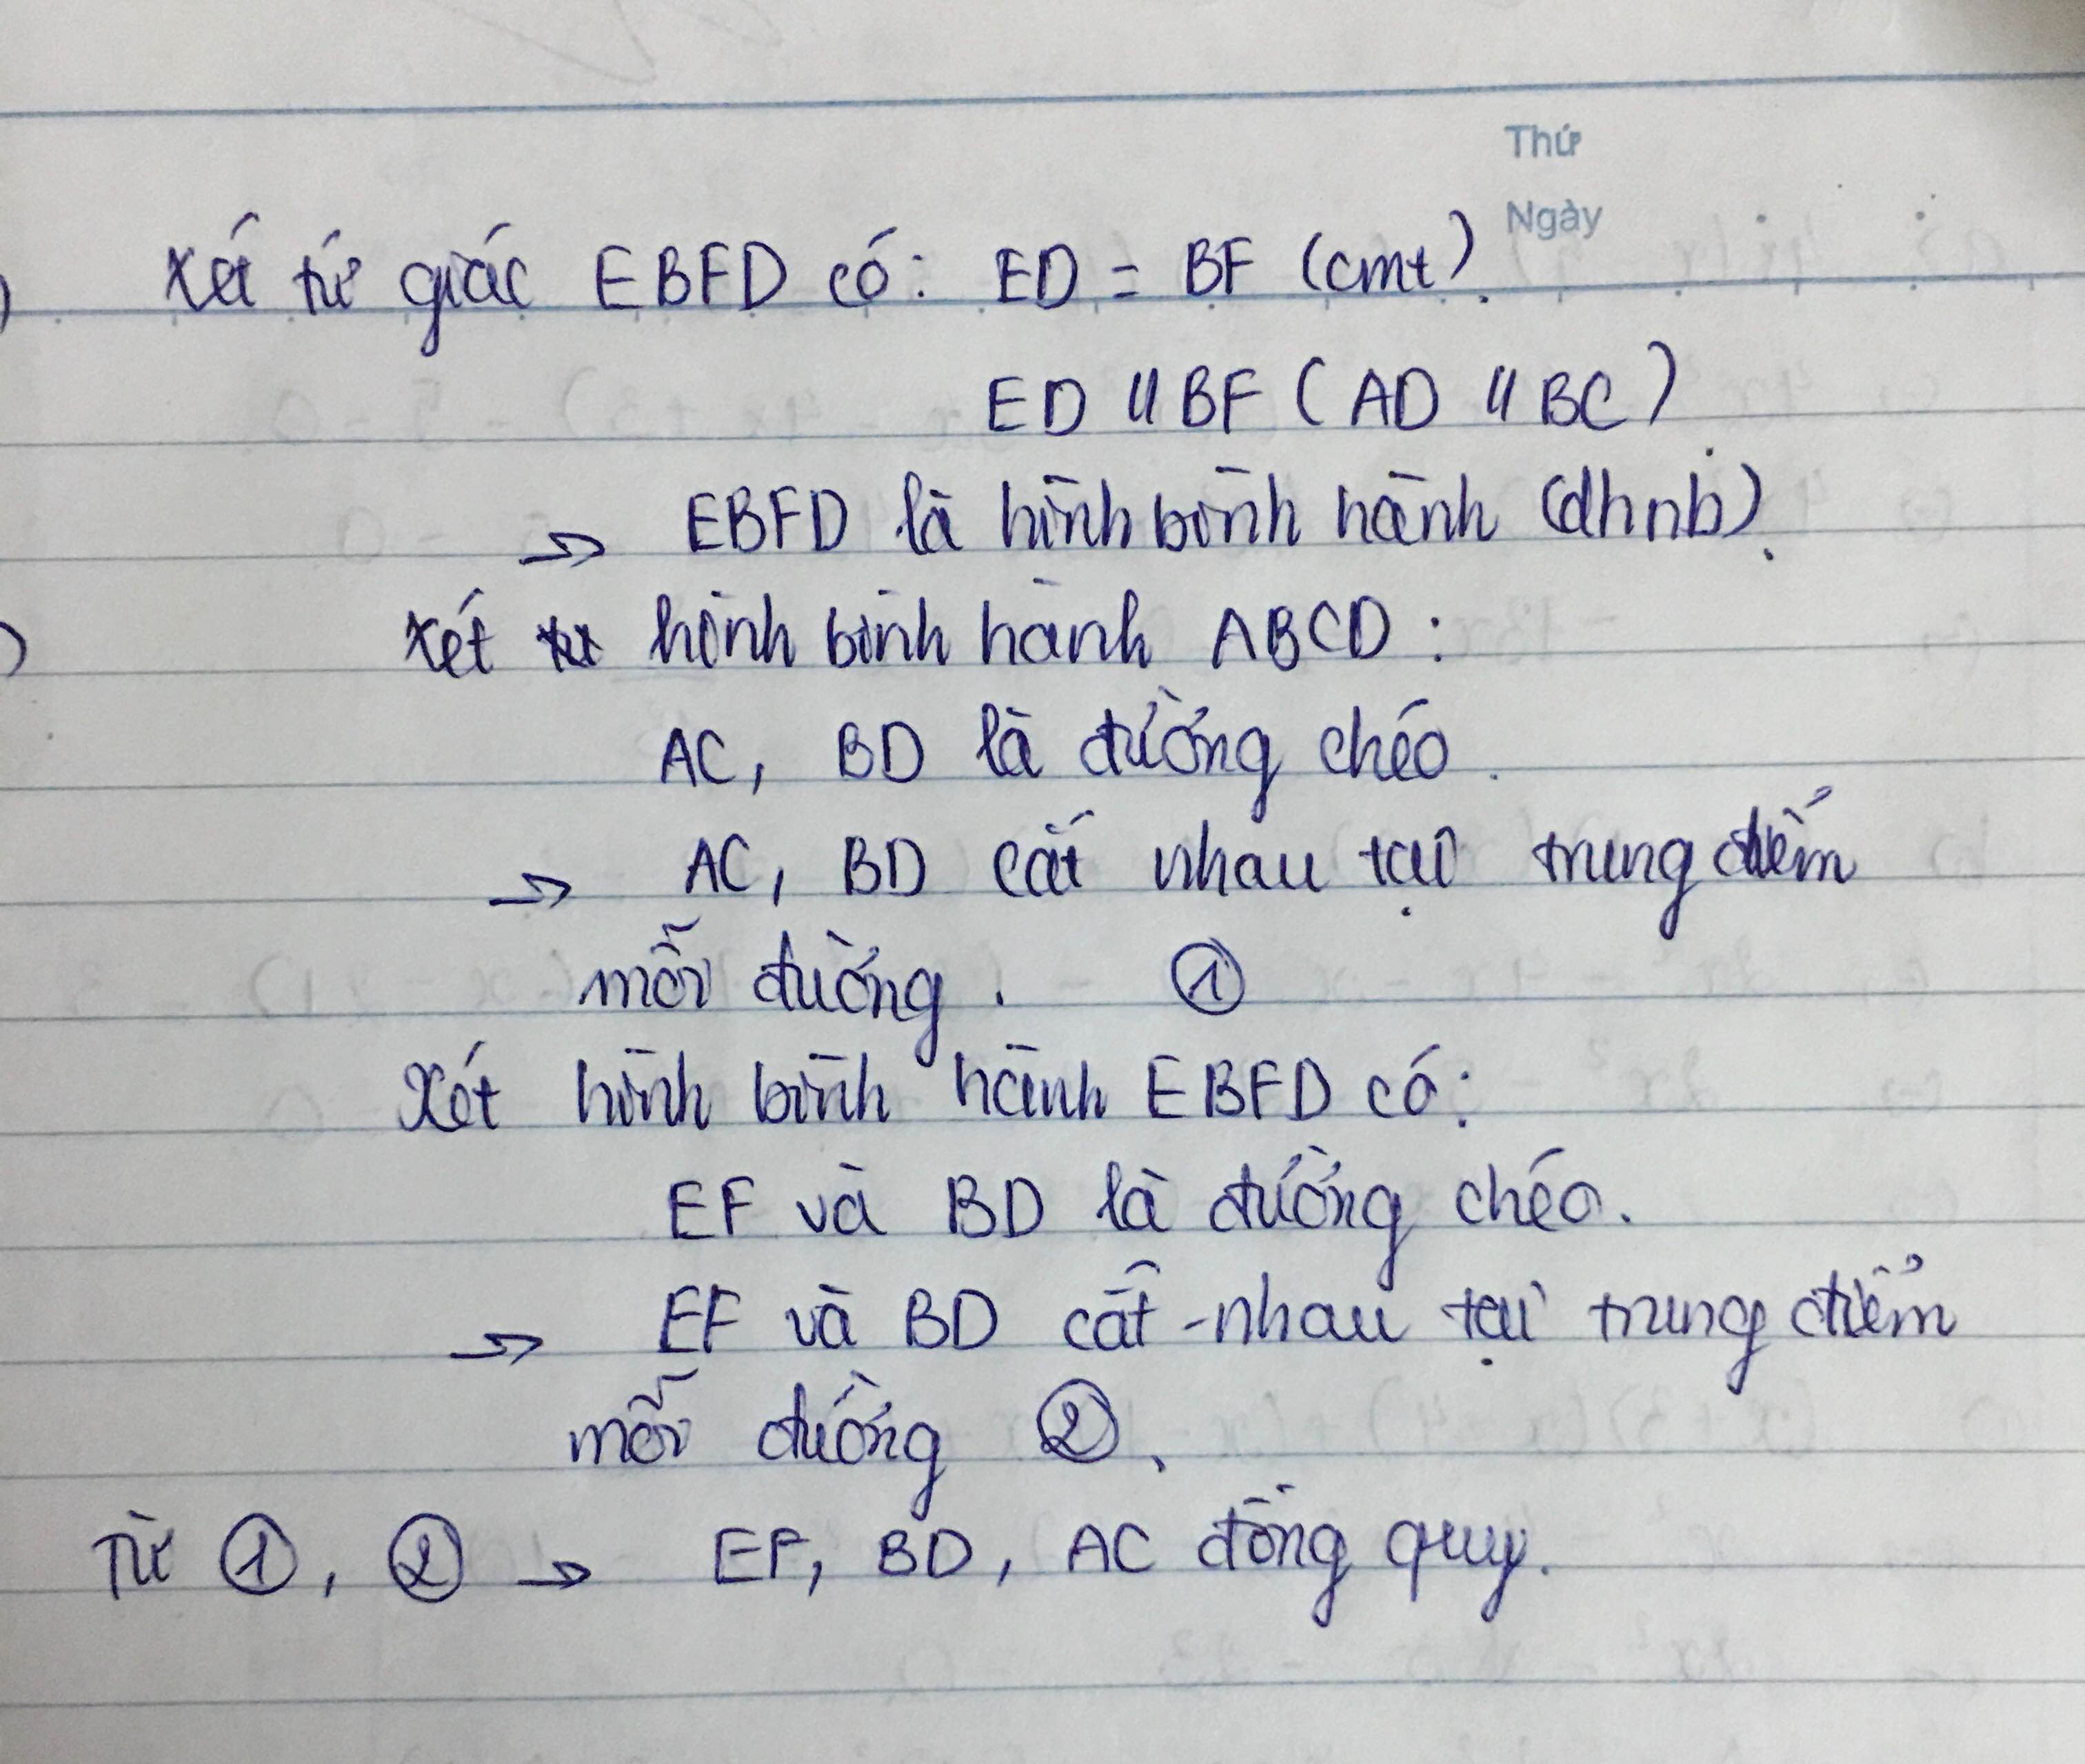 Thứ
Ngày
) Xét tứ giác EBFD có: ED = BF (cmt).
ED // BF ( AD // BC )
→ EBFD là hình bình hành (dhnb).
) Xét hình bình hành ABCD :
AC, BD là đường chéo.
→ AC, BD cắt nhau tại trung điểm
mỗi đường. ①
Xét hình bình hành EBFD có:
EF và BD là đường chéo.
→ EF và BD cắt nhau tại trung điểm
mỗi đường ②.
Từ ①, ② → EF, BD, AC đồng quy.